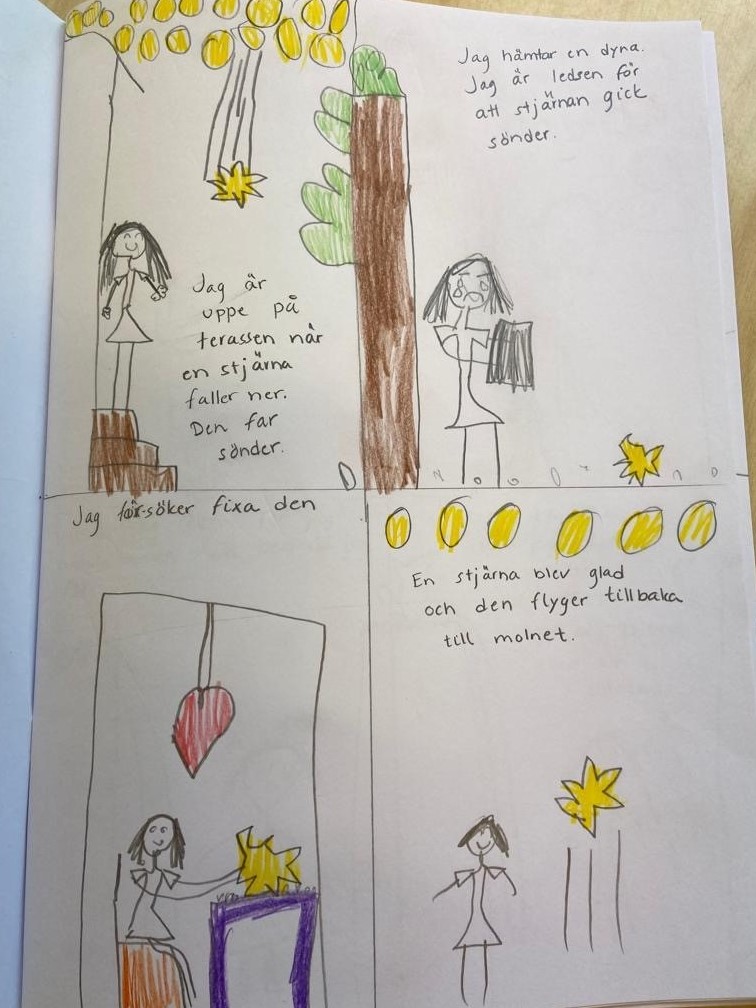 Jag är
uppe på
terassen när
en stjärna
faller ner.
Den far
sönder.
Jag hämtar en dyna.
Jag är ledsen för
att stjärnan gick
sönder.
Jag för-söker fixa den
En stjärna blev glad
och den flyger tillbaka
till molnet.